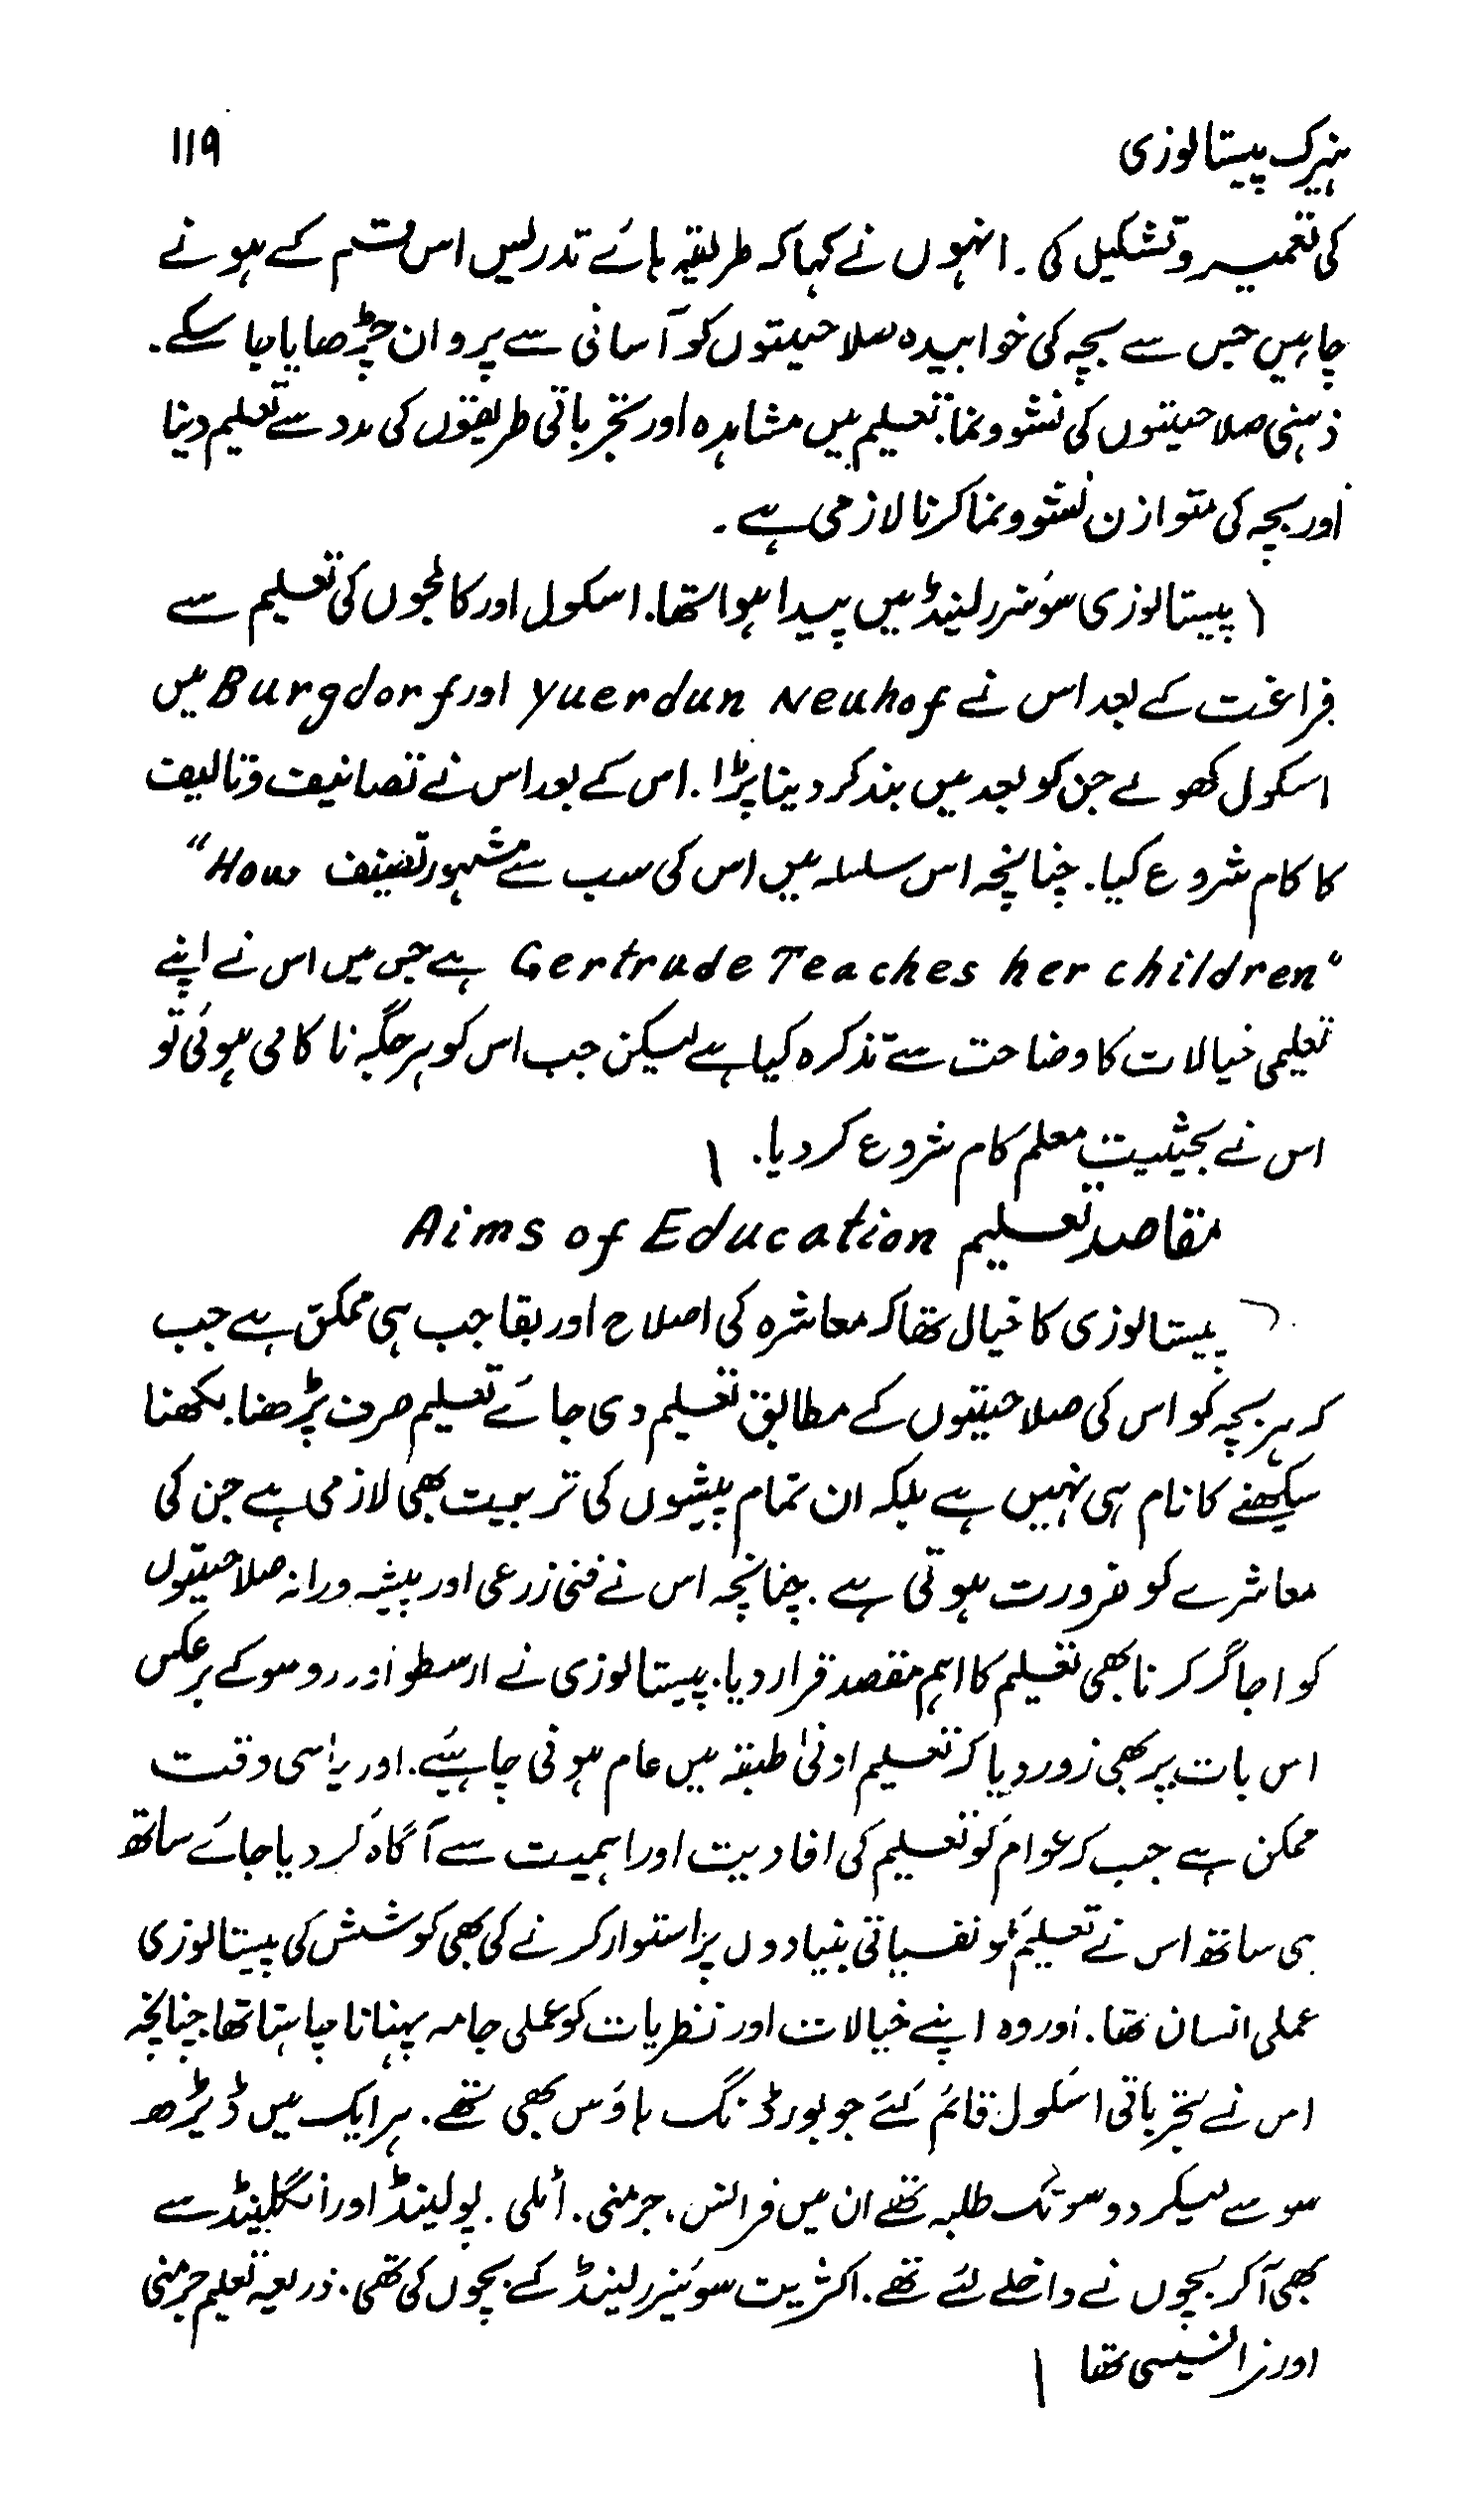 ہنرک پیستالوزی ۱۱۹
کی تعمیر و تشکیل کی۔ انہوں نے کہا کہ طریقہ ہائے تدریس اس قسم کے ہونے
چاہیں جس سے بچہ کی خوابیدہ صلاحیتوں کو آسانی سے پروان چڑھایا جا سکے۔
ذہنی صلاحیتوں کی نشوونما، تعلیم میں مشاہدہ اور تجرباتی طریقوں کی مدد سے تعلیم دینا
اور بچہ کی متوازن نشوونما کرنا لازمی ہے۔
پیستالوزی سوئزرلینڈ میں پیدا ہوا تھا۔ اسکول اور کالجوں کی تعلیم سے
فراغت کے بعد اس نے Yuerdun Neuhof اور Burgdorf میں
اسکول کھولے جن کو بعد میں بند کر دینا پڑا۔ اس کے بعد اس نے تصانیف و تالیف
کا کام شروع کیا۔ چنانچہ اس سلسلہ میں اس کی سب سے مشہور تصنیف "How
Gertrude Teaches her children" ہے جس میں اس نے اپنے
تعلیمی خیالات کا وضاحت سے تذکرہ کیا ہے لیکن جب اس کو ہر جگہ ناکامی ہوئی تو
اس نے بحیثیت معلم کام شروع کر دیا۔
مقاصد تعلیم Aims of Education
پیستالوزی کا خیال تھا کہ معاشرہ کی اصلاح اور بقا جب ہی ممکن ہے جب
کہ ہر بچہ کو اس کی صلاحیتوں کے مطابق تعلیم دی جائے تعلیم صرف پڑھنا۔ لکھنا
سیکھنے کا نام ہی نہیں ہے بلکہ ان تمام پیشوں کی تربیت بھی لازمی ہے جن کی
معاشرے کو ضرورت ہوتی ہے۔ چنانچہ اس نے فنی زرعی اور پیشہ ورانہ صلاحیتوں
کو اجاگر کرنا بھی تعلیم کا اہم مقصد قرار دیا۔ پیستالوزی نے ارسطو اور روسو کے برعکس
اس بات پر بھی زور دیا کہ تعلیم ادنیٰ طبقہ میں عام ہونی چاہیئے۔ اور یہ اسی وقت
ممکن ہے جب کہ عوام کو تعلیم کی افادیت اور اہمیت سے آگاہ کر دیا جائے ساتھ
ہی ساتھ اس نے تعلیم کو نفسیاتی بنیادوں پر استوار کرنے کی بھی کوشش کی پیستالوزی
عملی انسان تھا۔ اور وہ اپنے خیالات اور نظریات کو عملی جامہ پہنانا چاہتا تھا چنانچہ
اس نے تجرباتی اسکول قائم کئے جو بورڈنگ ہاؤس بھی تھے۔ ہر ایک میں ڈیڑھ
سو سے لیکر دو سو تک طلبہ تھے ان میں فرانس، جرمنی۔ اٹلی۔ پولینڈ اور انگلینڈ سے
بھی آ کر بچوں نے داخلے لئے تھے۔ اکثریت سوئیزرلینڈ کے بچوں کی تھی۔ ذریعہ تعلیم جرمنی
اور فرانسیسی تھا